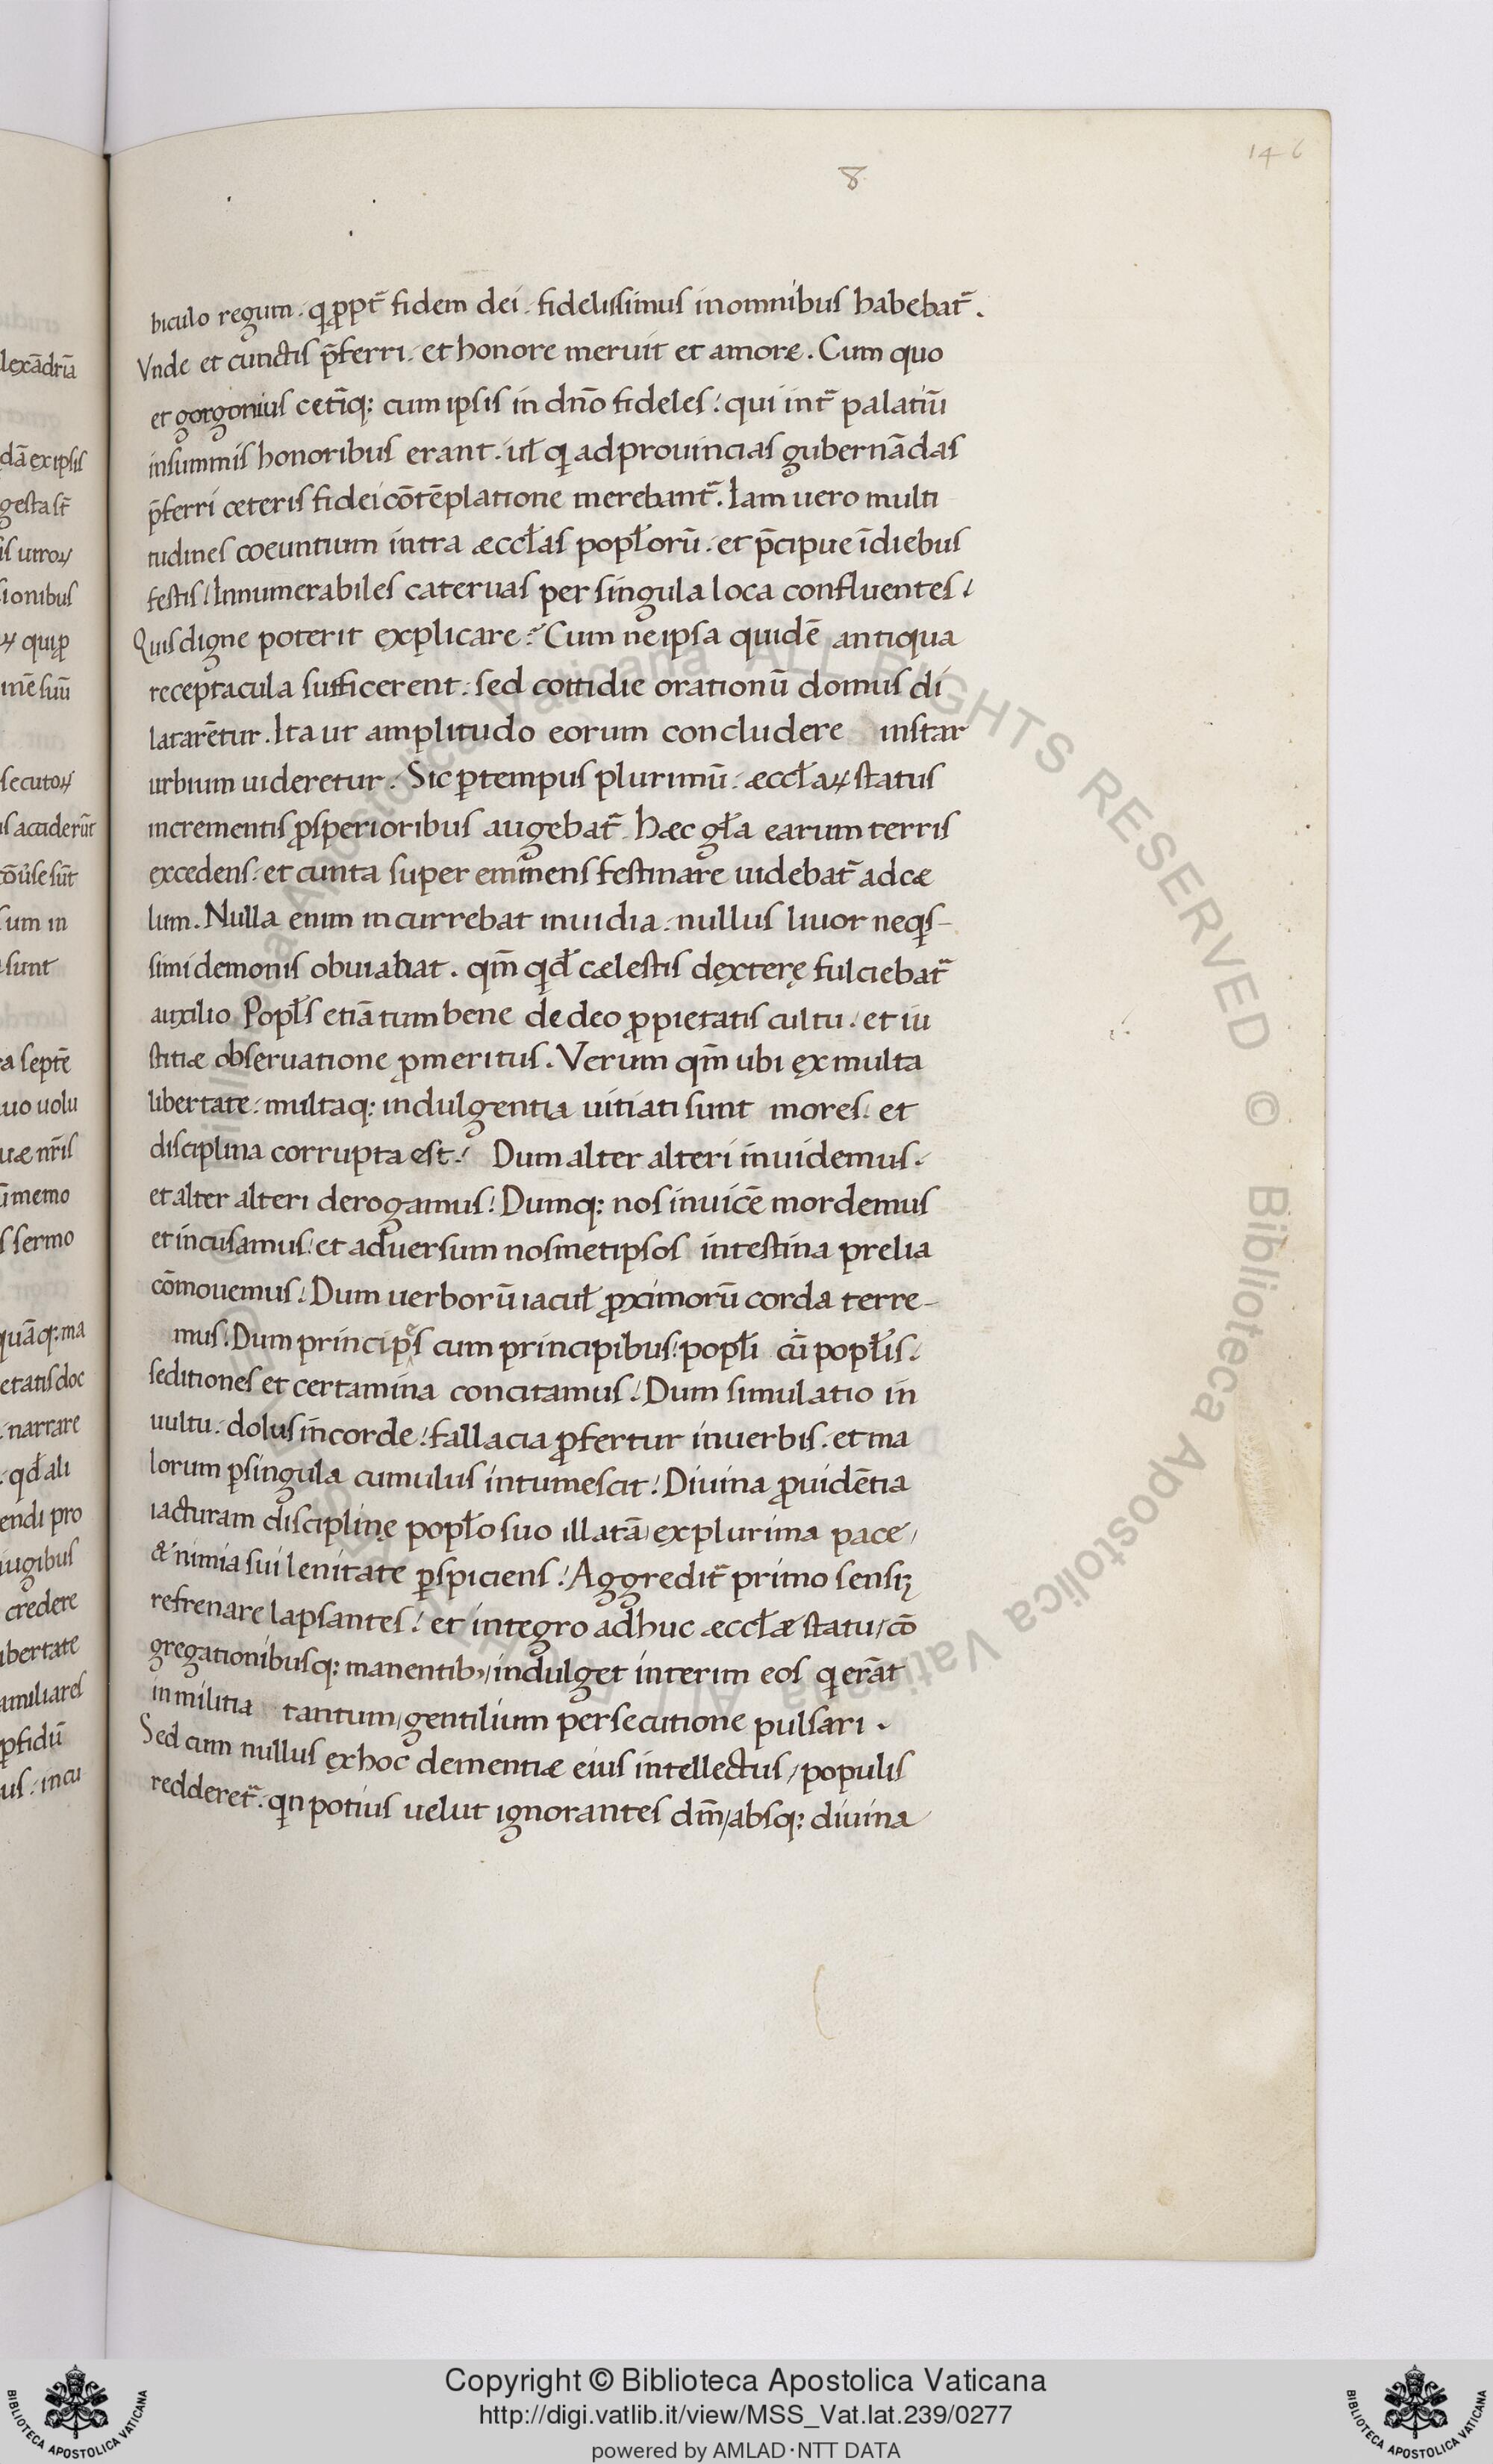 146
8
biculo regum. q ꝓpt̄ fidem dei. fidelissimus inomnibus habebat̄.
Vnde et cunctis p̄ferri. et honore meruit et amore. Cum quo
et gorgonius cet̄iq: cum ipsis in dn̄o fideles. qui int̄ palatiū
insummis honoribus erant. uł q adprouincias gubernādas
p̄ferri ceteris fidei cōtēplatione merebant̄. Iam uero multi
tudines coeuntium intra æccłas popłorū. et p̄cipue īdiebus
festis. Innumerabiles cateruas per singula loca confluentes.
Quis digne poterit explicare? Cum ne ipsa quidē antiqua
receptacula sufficerent. sed cottidie orationū domus di
latarētur. Ita ut amplitudo eorum concludere instar
urbium uideretur. Sic ꝑ tempus plurimū. æccłaꝝ status
incrementis ꝓsperioribus augebat̄. hæc gła earum terris
excedens. et cunta super eminens festinare uidebat̄ ad cæ
lum. Nulla enim incurrebat inuidia. nullus liuor neqis-
simi demonis obuiabat. qm̄ qđ cælestis dexterę fulciebat̄
auxilio Popłs etiā tum bene de deo ꝓ pietatis cultu. et iu
stitiæ obseruatione ꝓmeritus. Verum qm̄ ubi ex multa
libertate. multaq: indulgentia uitiati sunt mores. et
disciplina corrupta est. Dum alter alteri inuidemus.
et alter alteri derogamus. Dumq: nos inuicē mordemus
et incusamus. et aduersum nosmetipsos intestina prelia
cōmouemus. Dum uerborū iacuł ꝓximorū corda terre-
mus. Dum principes cum principibus. popłi cū popłis.
seditiones et certamina concitamus. Dum simulatio in
uultu. dolus in corde. fallacia ꝓfertur inuerbis. et ma
lorum ꝑsingula cumulus intumescit. Diuina ꝓuidētia
iacturam disciplinę popło suo illatā, ex plurima pace,
& nimia sui lenitate ꝑspiciens. Aggredit̄ primo sensiꝫ
refrenare lapsantes. et integro adhuc æccłæ statu, cō
gregationibusq: manentib;, indulget interim eos q erāt
in militia tantum, gentilium persecutione pulsari.
Sed cum nullus ex hoc clementiæ eius intellectus, populis
redderet̄. qn potius uelut ignorantes dm̄, absq: diuina
lexādriā
dā ex ipsis
gesta st̄
is uiroꝝ
sionibus
ꝝ quiꝓ
mē suū
secutoꝝ
is acciderūt
sum in
sunt
a septē
uo uolu
uæ nr̄is
memo
s sermo
quāq: ma
etatis doc
narrare
qđ ali
endi pro
iugibus
credere
ibertate
amiliares
ꝑfidū
us. in cu
© Biblioteca Apostolica Vaticana ALL RIGHTS RESERVED
Copyright © Biblioteca Apostolica Vaticana
http://digi.vatlib.it/view/MSS_Vat.lat.239/0277
powered by AMLAD·NTT DATA
BIBLIOTECA APOSTOLICA VATICANA
BIBLIOTECA APOSTOLICA VATICANA